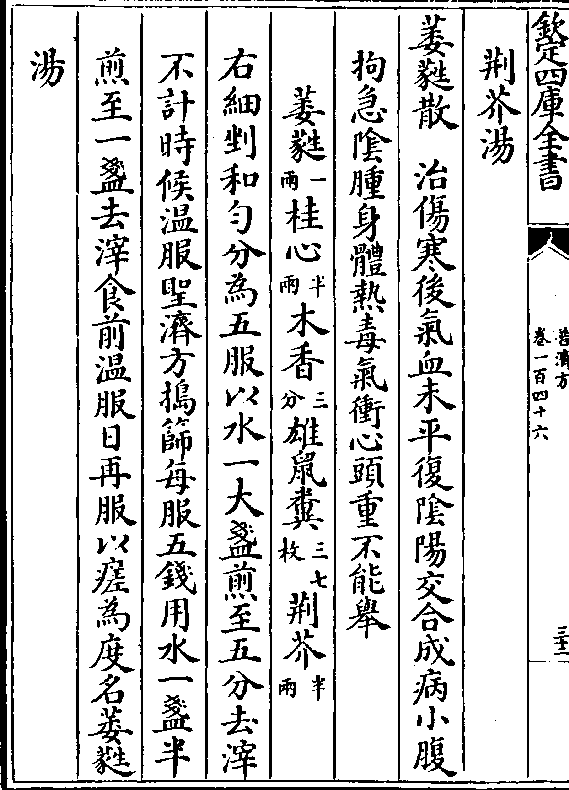 欽定四庫全書
普濟方
卷一百四十六
三十二
荆芥湯
萎蕤散　治傷寒後氣血未平復陰陽交合成病小腹
拘急陰腫身體熱毒氣衝心頭重不能舉
萎蕤一兩桂心半兩木香三分雄鼠糞三七枚荆芥半兩
右細剉和勻分為五服以水一大盞煎至五分去滓
不計時候温服聖濟方搗篩每服五錢用水一盞半
煎至一盞去滓食前温服日再服以瘥為度名萎蕤
湯